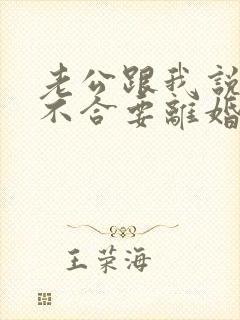 老公跟我說
不合要離婚
王荣海